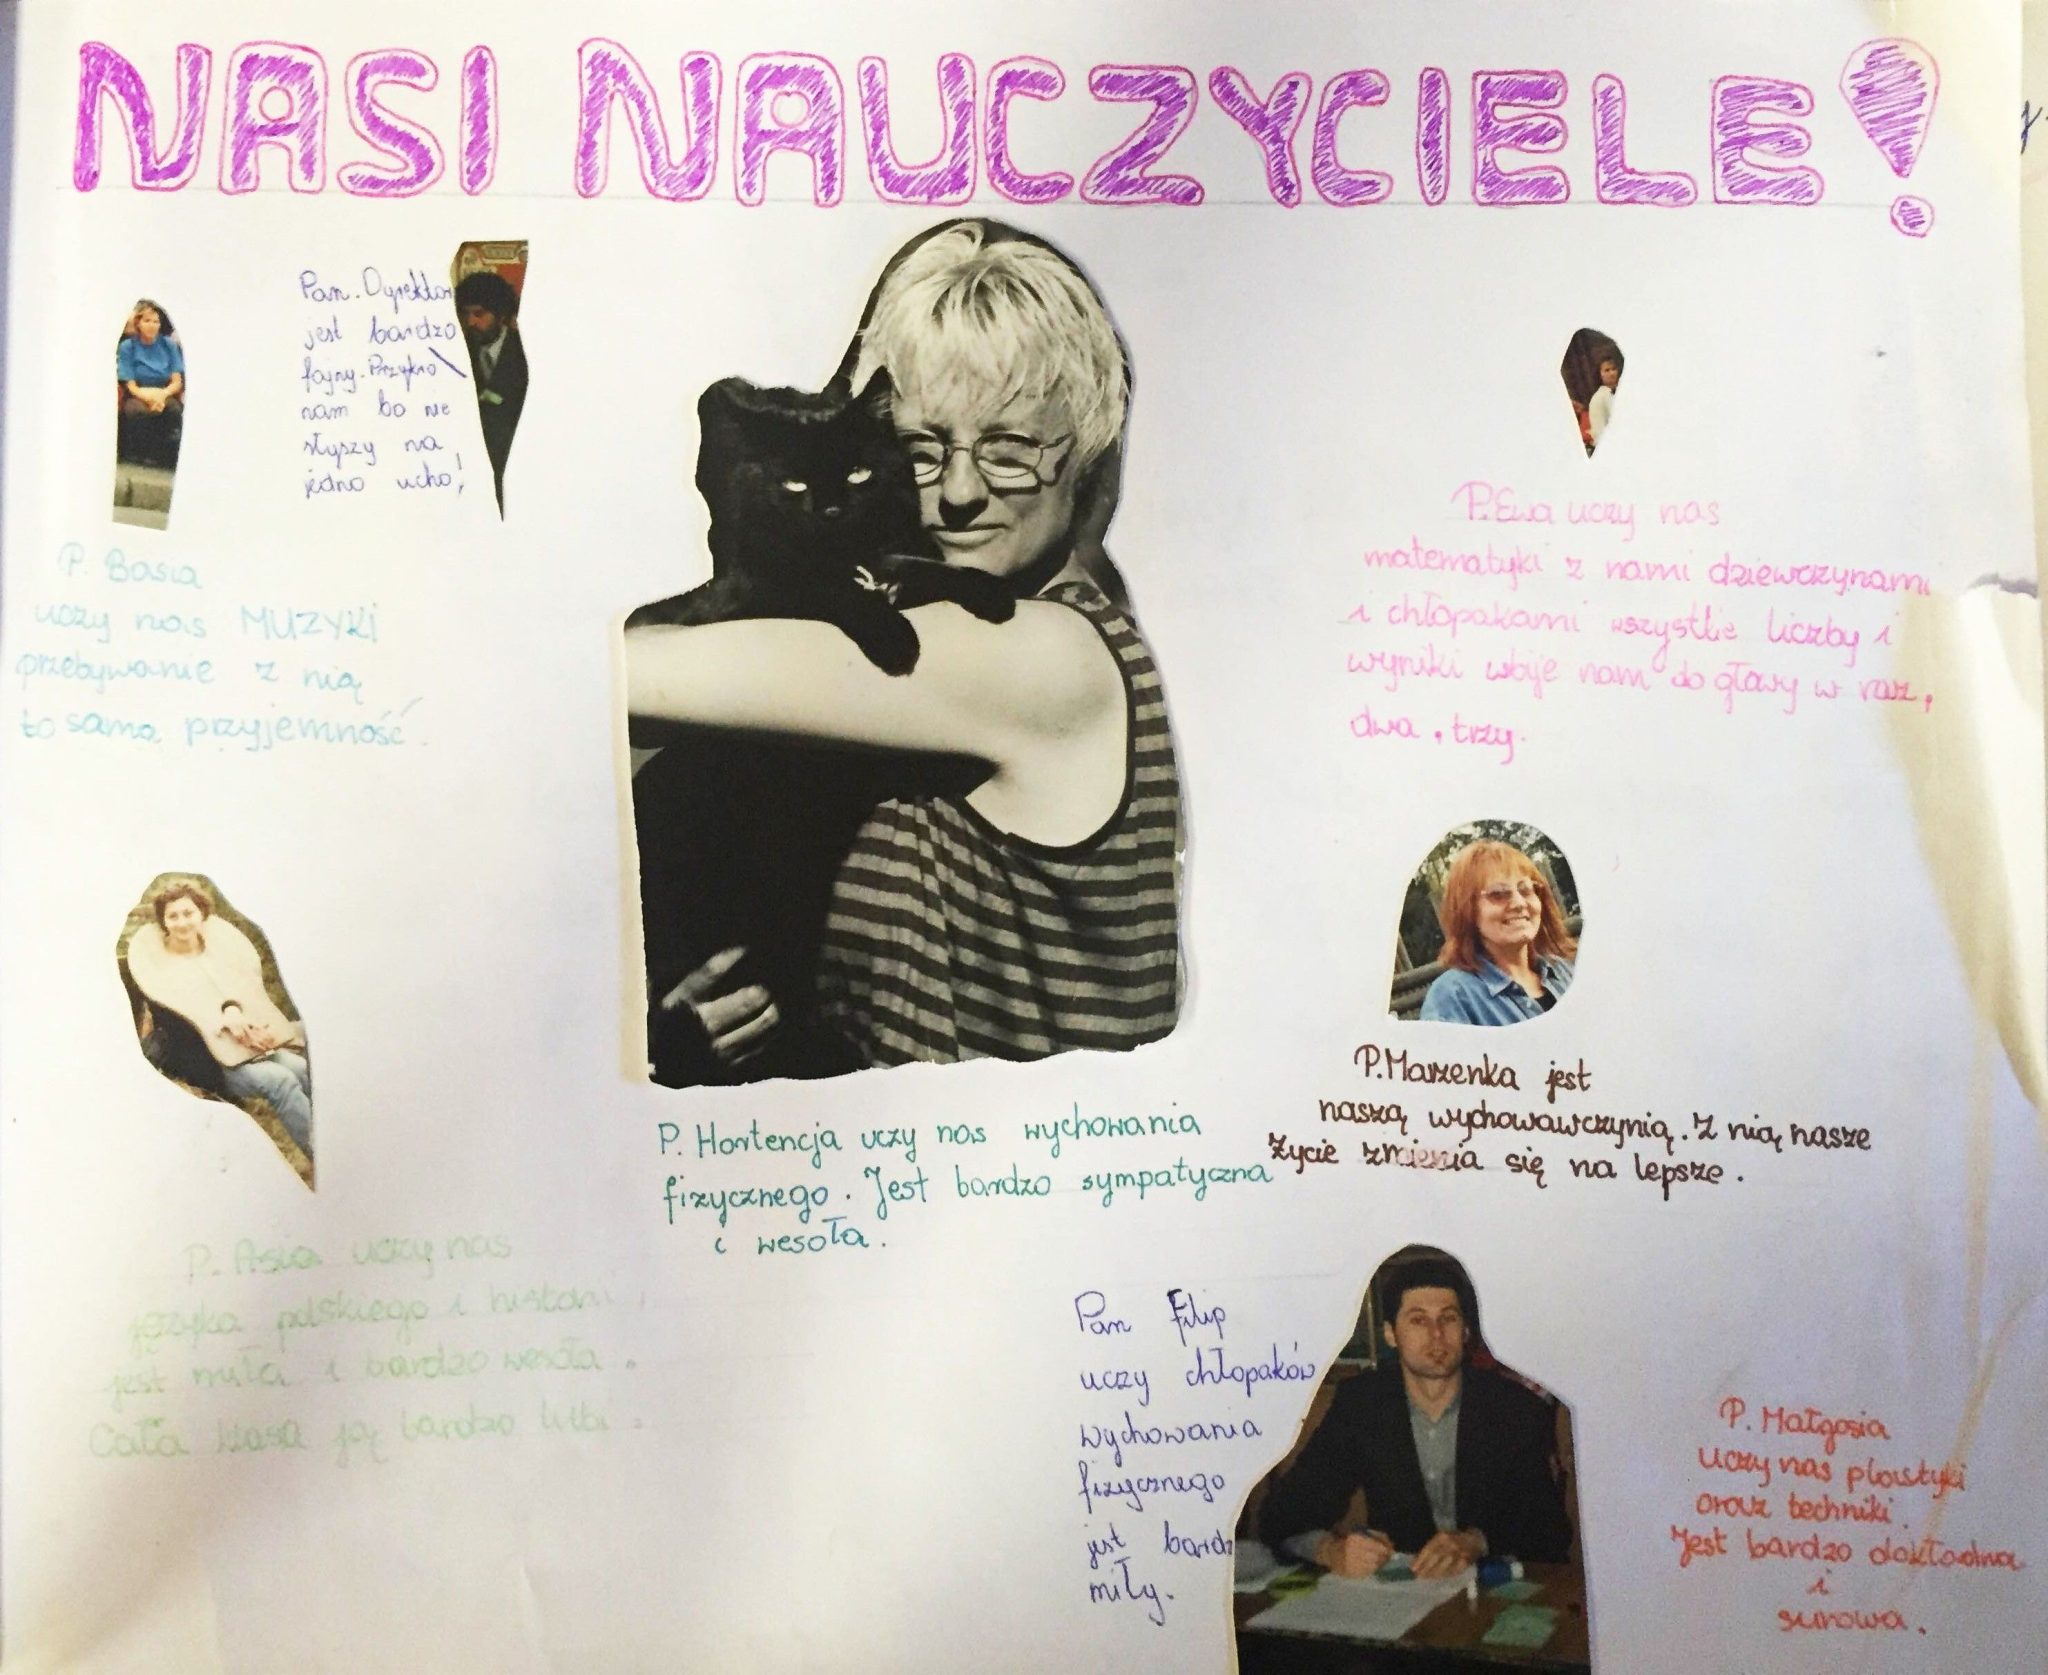 NASI NAUCZYCIELE!
Pan. Dyrektor
jest bardzo
fajny. Przykro
nam bo nie
słyszy na
jedno ucho!
P. Basia
uczy nas MUZYKI
przebywanie z nią
to sama przyjemność.
P. Ewa uczy nas
matematyki z nami dziewczynami
i chłopakami wszystkie liczby i
wyniki wbije nam do głowy w raz,
dwa, trzy.
P. Marzenka jest
naszą wychowawczynią. Z nią nasze
życie zmienia się na lepsze.
P. Hortencja uczy nas wychowania
fizycznego. Jest bardzo sympatyczna
i wesoła.
P. Asia uczy nas
języka polskiego i histori,
jest miła i bardzo wesoła.
Cała klasa ją bardzo lubi.
Pan Filip
uczy chłopaków
wychowania
fizycznego
jest bardz
miły.
P. Małgosia
uczy nas plastyki
oraz techniki.
Jest bardzo dokładna
i
surowa.